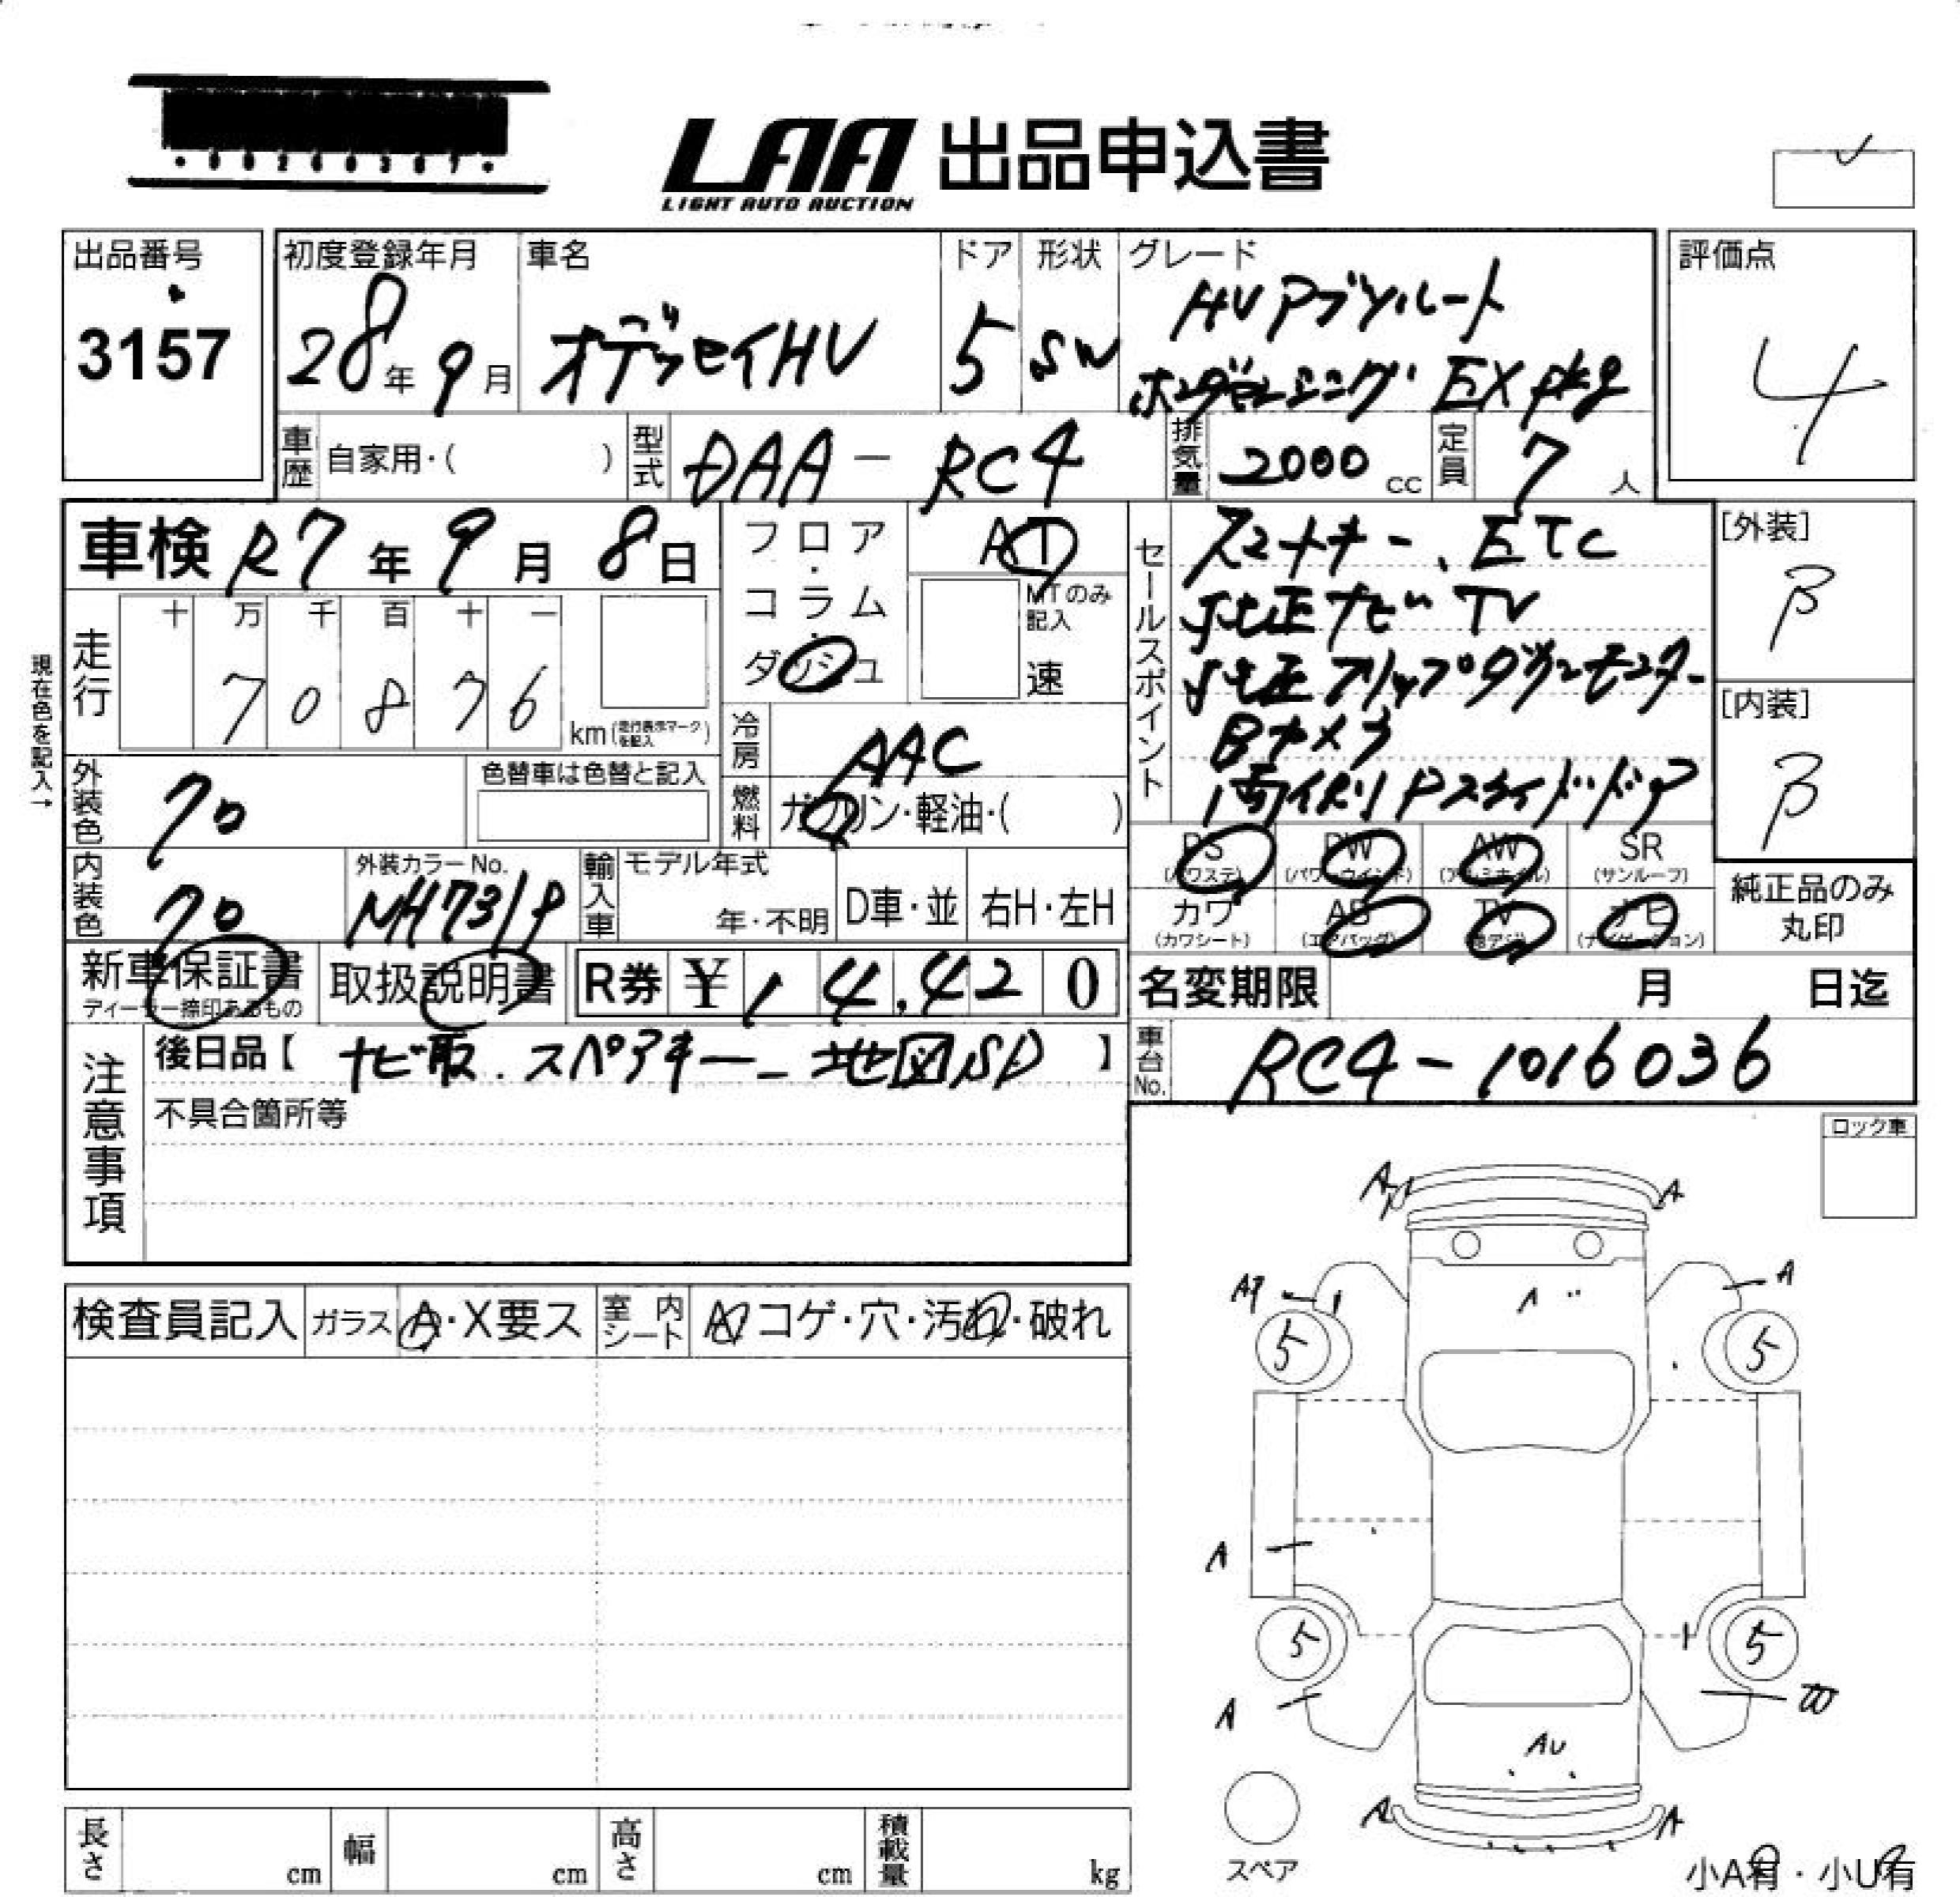 LAA 出品申込書
LIGHT AUTO AUCTION
出品番号
3157
初度登録年月
28年 9月
車名
オデッセイHV
ドア
5
形状
SW
グレード
HV アブソルート
ホンダセンシング EX pkg
評価点
4
車歴 自家用・( )
型式 DAA-RC4
排気量 2000 cc
定員 7 人
車検 R7年 9月 8日
フロア・コラム・ダッシュ
AT
MTのみ記入
速
セールスポイント
スマートキー、ETC
純正ナビ TV
純正フリップダウンモニター
Bカメラ
両側PスライドドドA
[外装]
B
[内装]
B
現在色を記入→
走行
十 万 千 百 十 一
7 0 8 7 6
km (走行表示マークを記入)
冷房 AAC
外装色 クロ
色替車は色替と記入
燃料 ガソリン・軽油・( )
PS (パワステ)
PW (パワーウインド)
AW (アルミホイル)
SR (サンルーフ)
内装色 クロ
外装カラーNo.
NH731P
輸入車
モデル年式
年・不明
D車・並
右H・左H
カワ (カワシート)
AB (エアバッグ)
TV (地デジ)
ナビ (ナビゲーション)
純正品のみ
丸印
新車保証書
ディーラー捺印あるもの
取扱説明書
R券 ¥ 14,420
名変期限 月 日迄
注意事項
後日品【 ナビ取.スペアキー 地図SD 】
車台No. RC4-1016036
不具合箇所等
ロック車
A A
AP A
A
5 5
A
5 5
A W
AU
A A
検査員記入
ガラス A・X要ス
室内シート
コゲ・穴・汚れ・破れ
長さ cm
幅 cm
高さ cm
積載量 kg
スペア
小A有・小U有